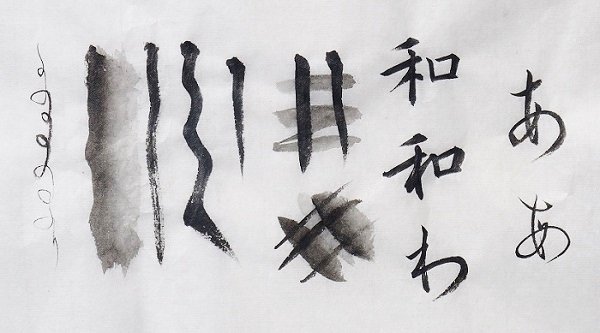 ああ
和和わ